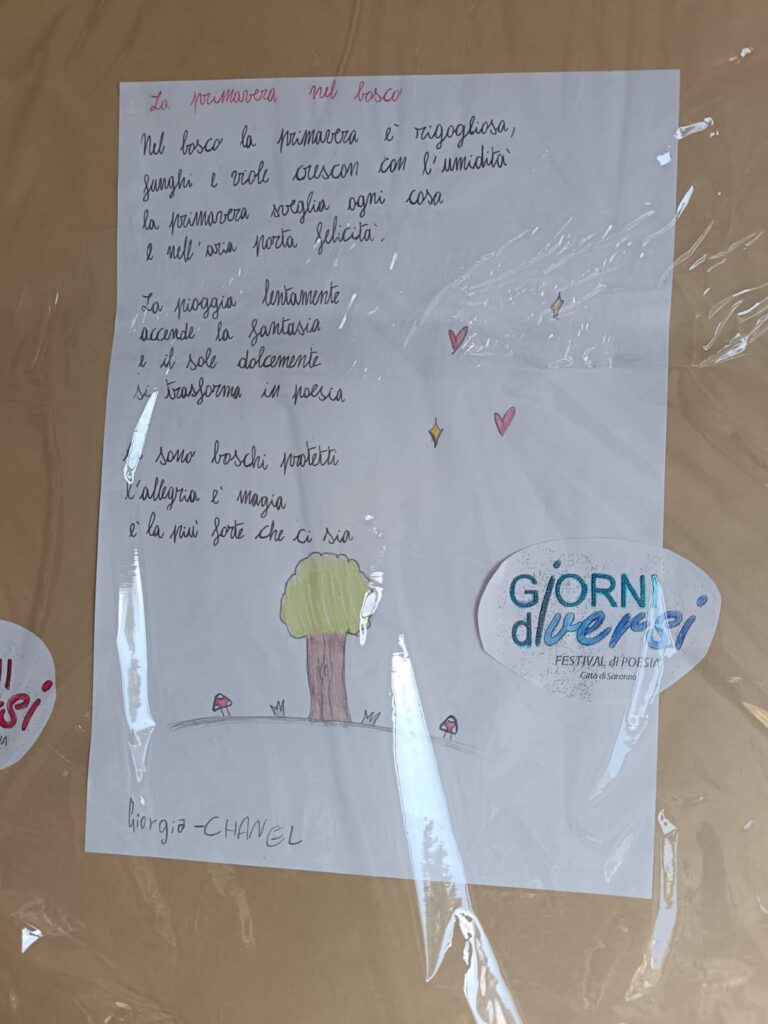 La primavera nel bosco
Nel bosco la primavera è rigogliosa,
funghi e viole crescon con l'umidità
la primavera sveglia ogni cosa
e nell'aria porta felicità.
La pioggia lentamente
accende la fantasia
e il sole dolcemente
si trasforma in poesia
sono boschi protetti
l'allegria è magia
è la più forte che ci sia
GiORNi
diversi
FESTIVAL di POESIA
Città di Saronno
Giorgia - CHANEL